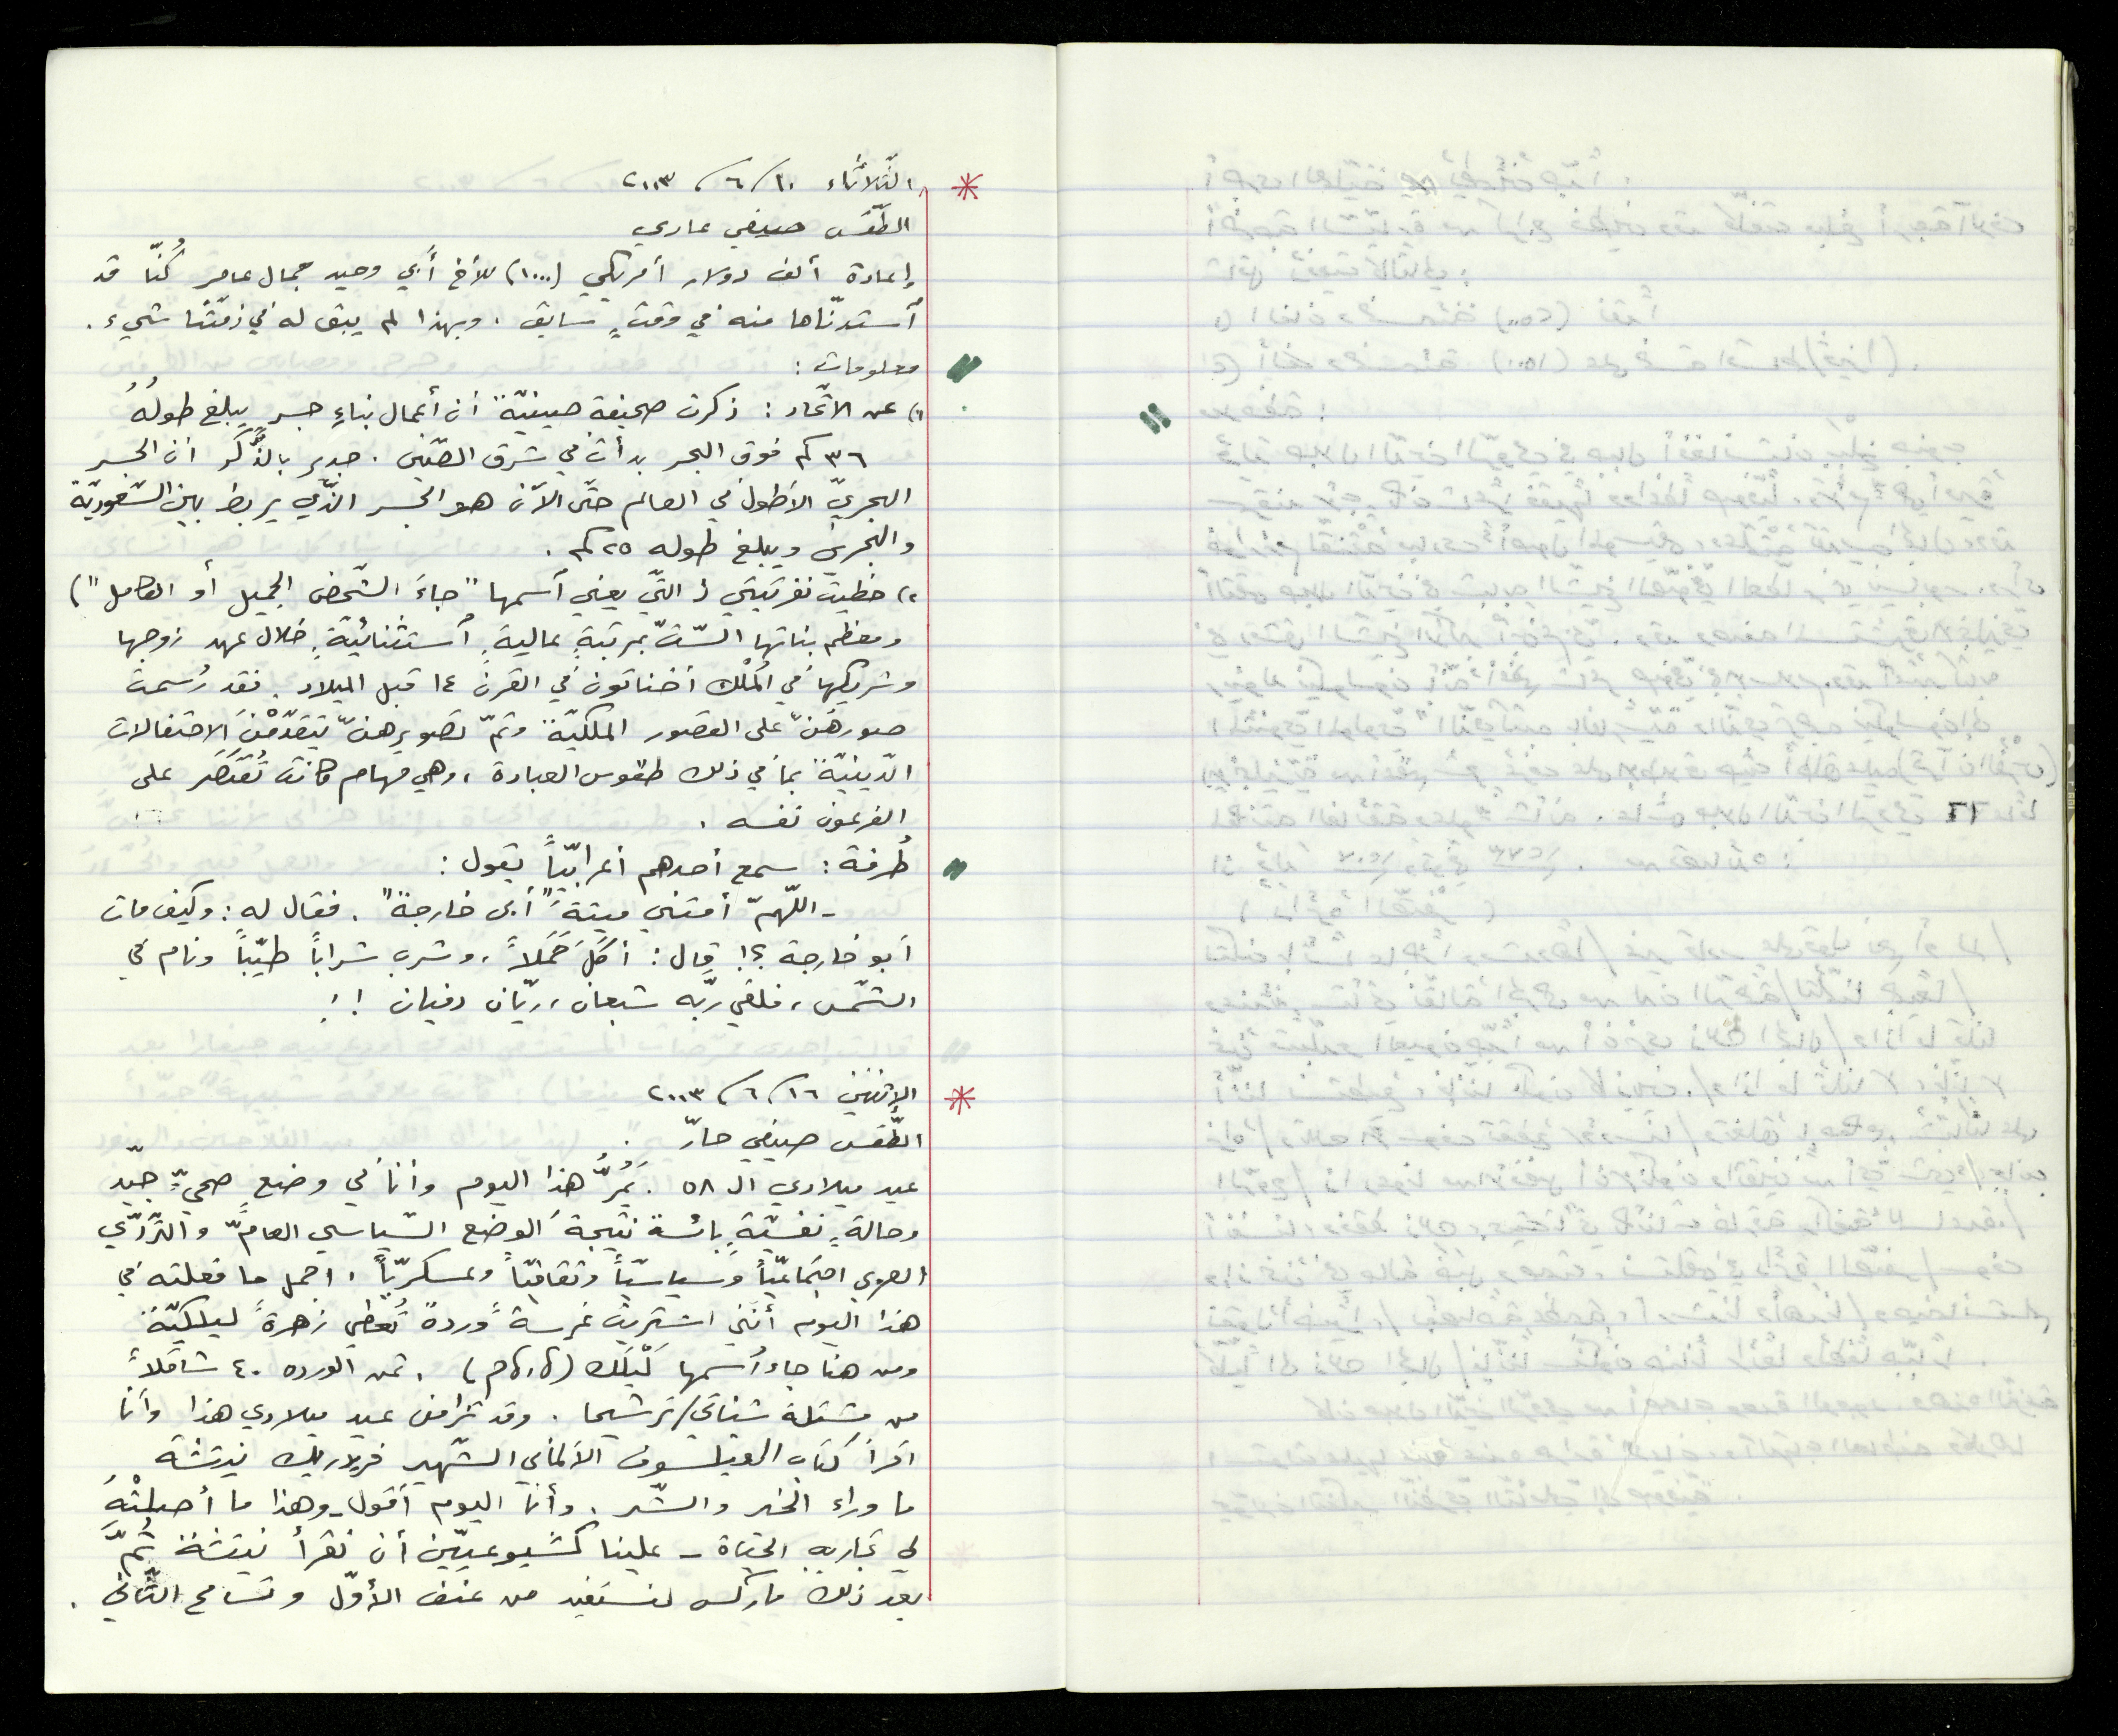 الثّلاثاء ١٠/٦/٢٠٠٣
الطّقس صيفي عادي
إعادة ألف دولار أمريكي (١٠٠٠) للأخ أبي وحيد جمال عامر كُنّا قد
أستدنّاها منه في وقتٍ سابق. وبهذا لم يبق له في ذمّتنا شيء.
معلومات:
١) عن الاتّحاد: ذكرت صحيفة صينيّة أن أعمال بناءِ جسرٍ يبلغ طولُهُ
٣٦ كم فوق البحر بدأت في شرق الصّين. جدير بالذِّكر ان الجسر
البحريّ الأطول في العالم حتّى الآن هو الجسر الذّي يربط بين السّعوديّة
والبحرين ويبلغ طوله ٢٥ كم.
٢) حظيت نفرتيتي (التّي يعني أسمها "جاءَ الشّخص الجميل أو الكامل")
ومعظم بناتها السّتّ بمرتبةٍ عاليةٍ أستثنائيّةٍ خلال عهد زوجها
وشريكها في المُلْك أخناتون في القرن ١٤ قبل الميلاد. فقد رُسمت
صورهنّ على القصور الملكيّة وتمّ تصويرهنّ يتقدّمْنَ الاحتفالات
الدّينيّة بما في ذلك طقوس العبادة، وهي مهام كانت تُقتَصَر على
الفرعون نفسه.
طُرفة: سمع أحدهم أعرابيّاً يقول:
- اللّهمّ أمتني ميتةَ "أبي خارجة". فقال له: وكيف مات
أبو خارجة؟! قال: أكلَ حَمَلاً، وشرب شراباً طيّباً ونام في
الشّمس، فلقي ربّه شبعان، ريّان دفيان!!
الإثنين ١٦/٦/٢٠٠٣
الطّقس صيفي حارّ.
عيد ميلادي الـ ٥٨. يَمُرُّ هذا اليوم وأنا في وضعٍ صحيٍّ جيّد
وحالةٍ نفسيّةٍ بائسة نتيجة الوضع السّياسي العامّ والتّردّي
العربي اجتماعيّاً وسياسيّاً وثقافيّاً وعسكريّاً. اجمل ما فعلته في
هذا اليوم أنّني اشتريت غرسة وردة تُعطي زهرةً ليلكيّة
ومن هنا جاء أسمها لَيْلَك. ثمن الورده ٤٠ شاقلاً
من مشتلة شناتي/ترشيحا. وقد تزامن عيد ميلادي هذا وأنا
اقرأ كتاب الفيلسوف الألماني الشّهير فريدريك نيتشة
ما وراء الخير والشّر. وأنا اليوم أقول - وهذا ما أصبلتْهُ
لي تجارب الحياة - علينا كشيوعيّين أن نقرأ نيتشة ثُمّ
بعد ذلك ماركس لنستفيد من عنف الأوّل وتسامح الثّاني.